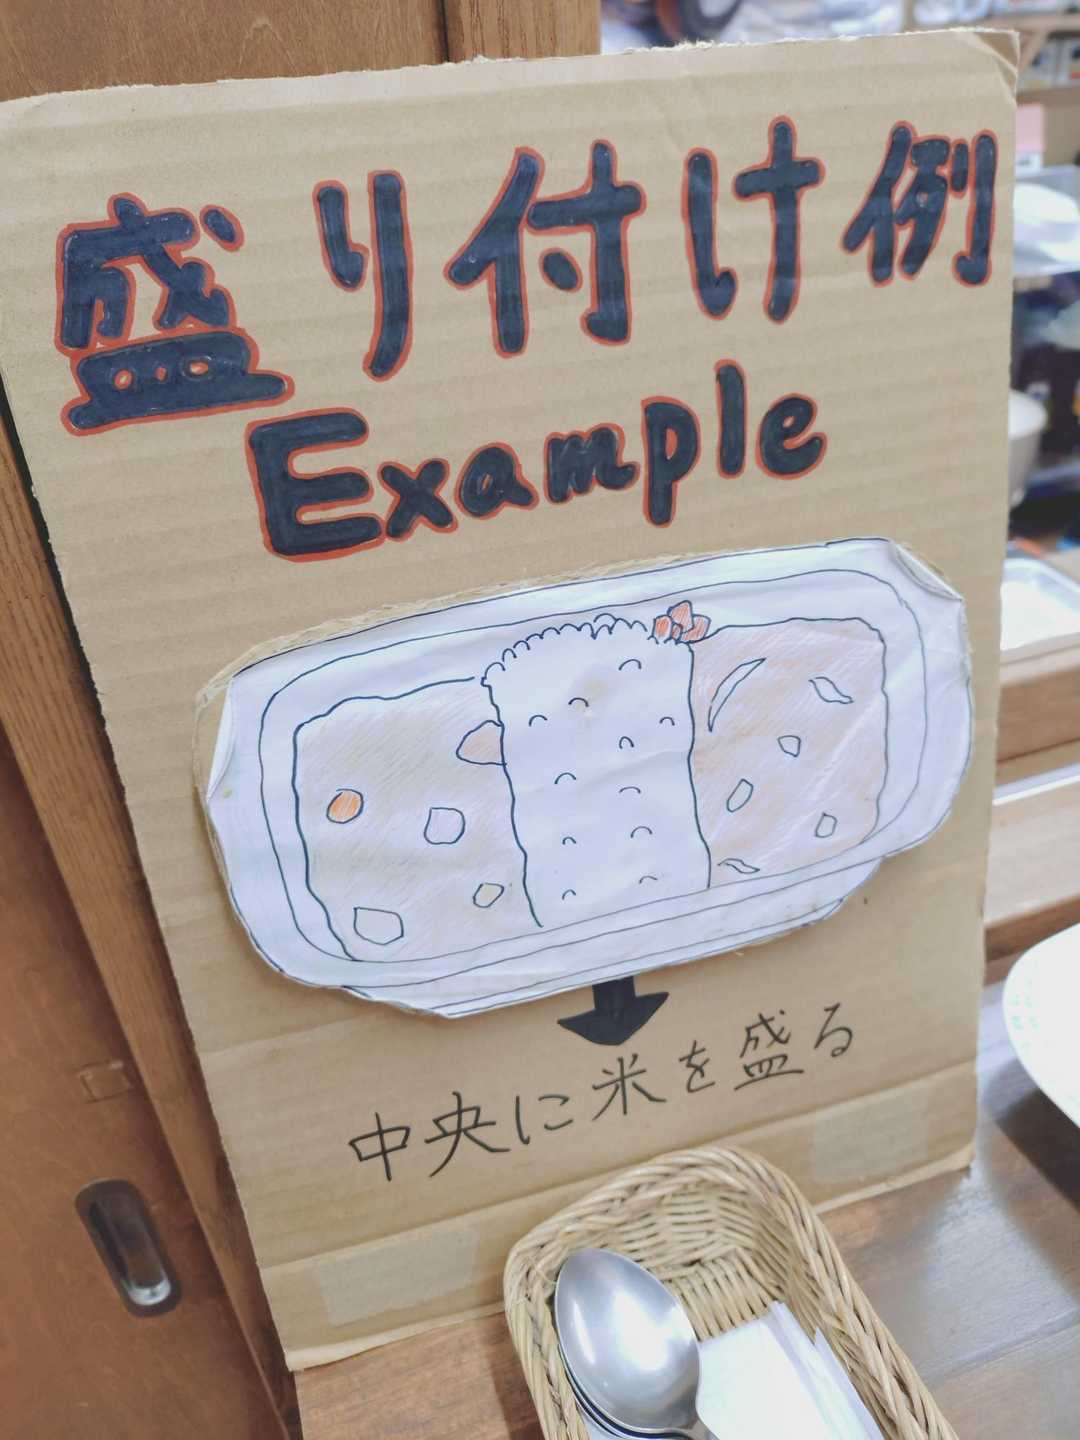 盛り付け例
Example
中央に米を盛る